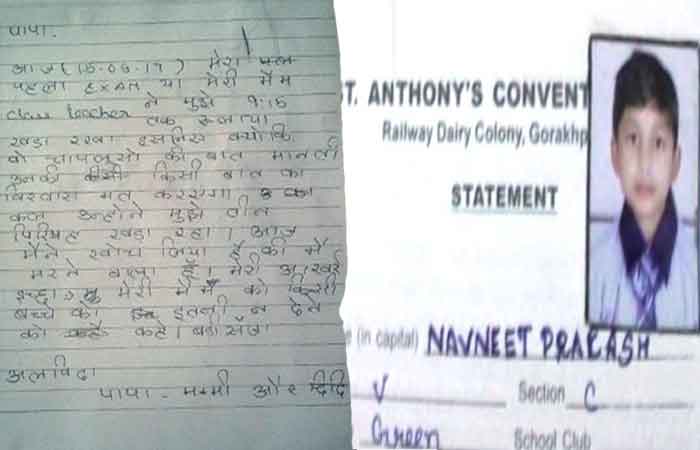 पापा.
आज (15-09-17) मेरा
पहला EXAM था मेरी मैम
class teacher ने मुझे 9:15
तक
खड़ा रखा इसलिए क्योंकि
वो चापलूसो की बात मानती
उनकी किसी बात का
विश्वास मत
कल उन्होंने मुझे तीन
पिरियड खड़ा रखा। आज
मैंने सोच लिया है की मैं
मरने वाला हूँ। मेरी
इच्छा मेरी मैम को किसी
बच्चे को इतनी
को कहे।
अलविदा
पापा - मम्मी और दिदि
ST. ANTHONY'S CONVENT
Railway Dairy Colony, Gorakhp
STATEMENT
(in capital) NAVNEET PRAKASH
V Section C
Green School Club